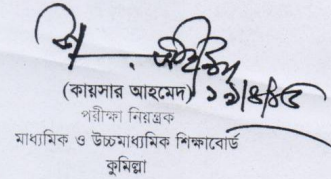 (কায়সার আহমেদ)
পরীক্ষা নিয়ন্ত্রক
মাধ্যমিক ও উচ্চমাধ্যমিক শিক্ষাবোর্ড
কুমিল্লা